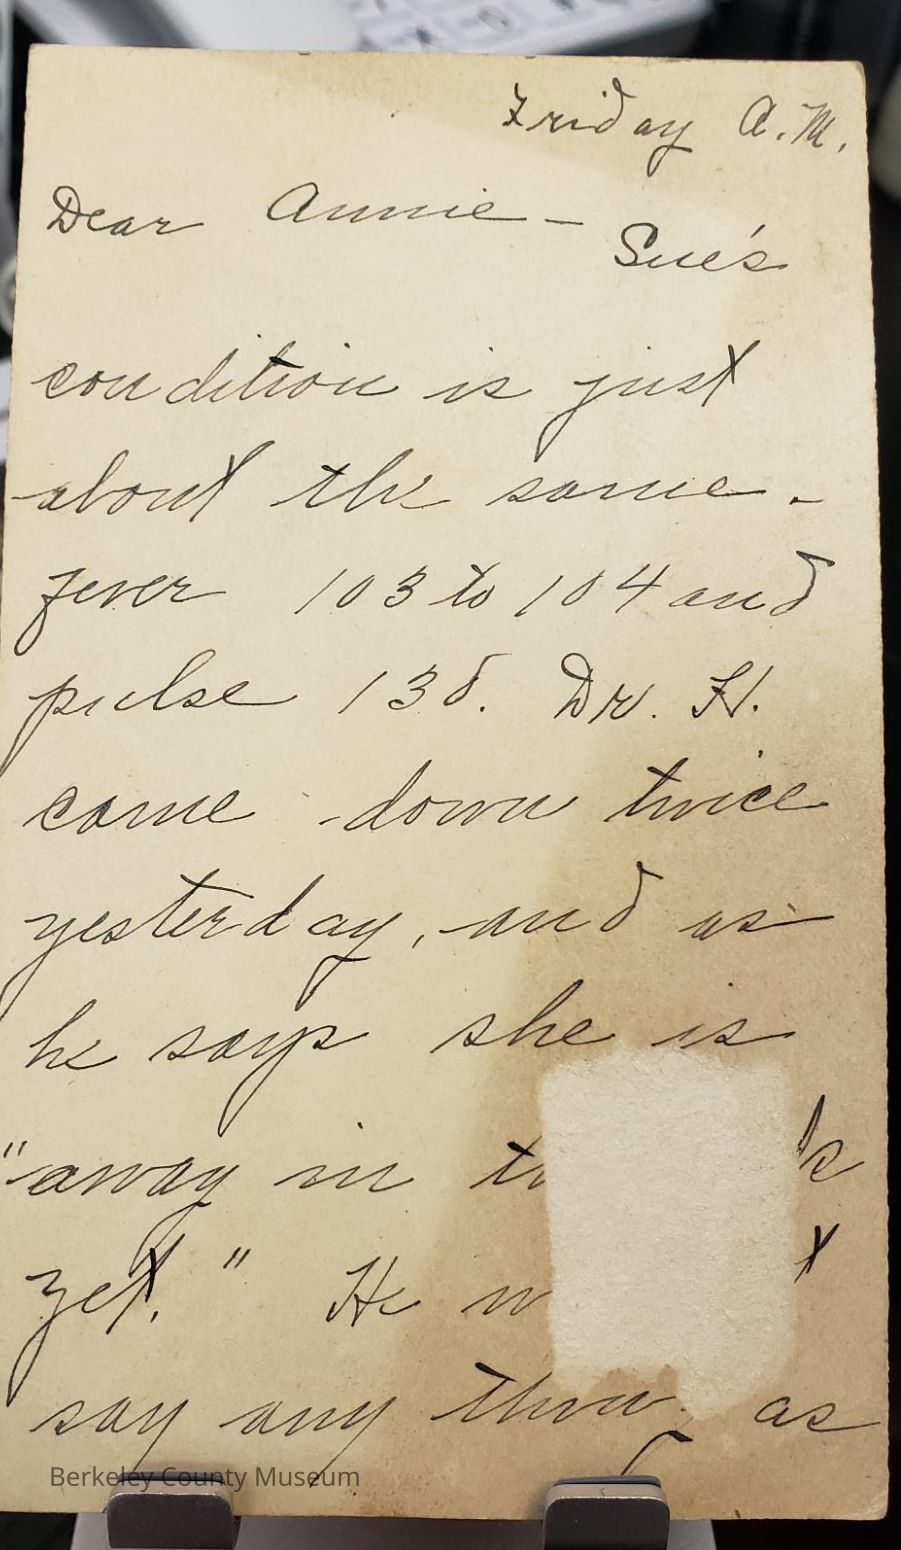 Friday A.M.
Dear Annie –
Sue's
condition is just
about the same –
fever 103 to 104 and
pulse 130. Dr. H.
came down twice
yesterday, and as
he says she is
"away in
yet." He
say any thing as
Berkeley County Museum